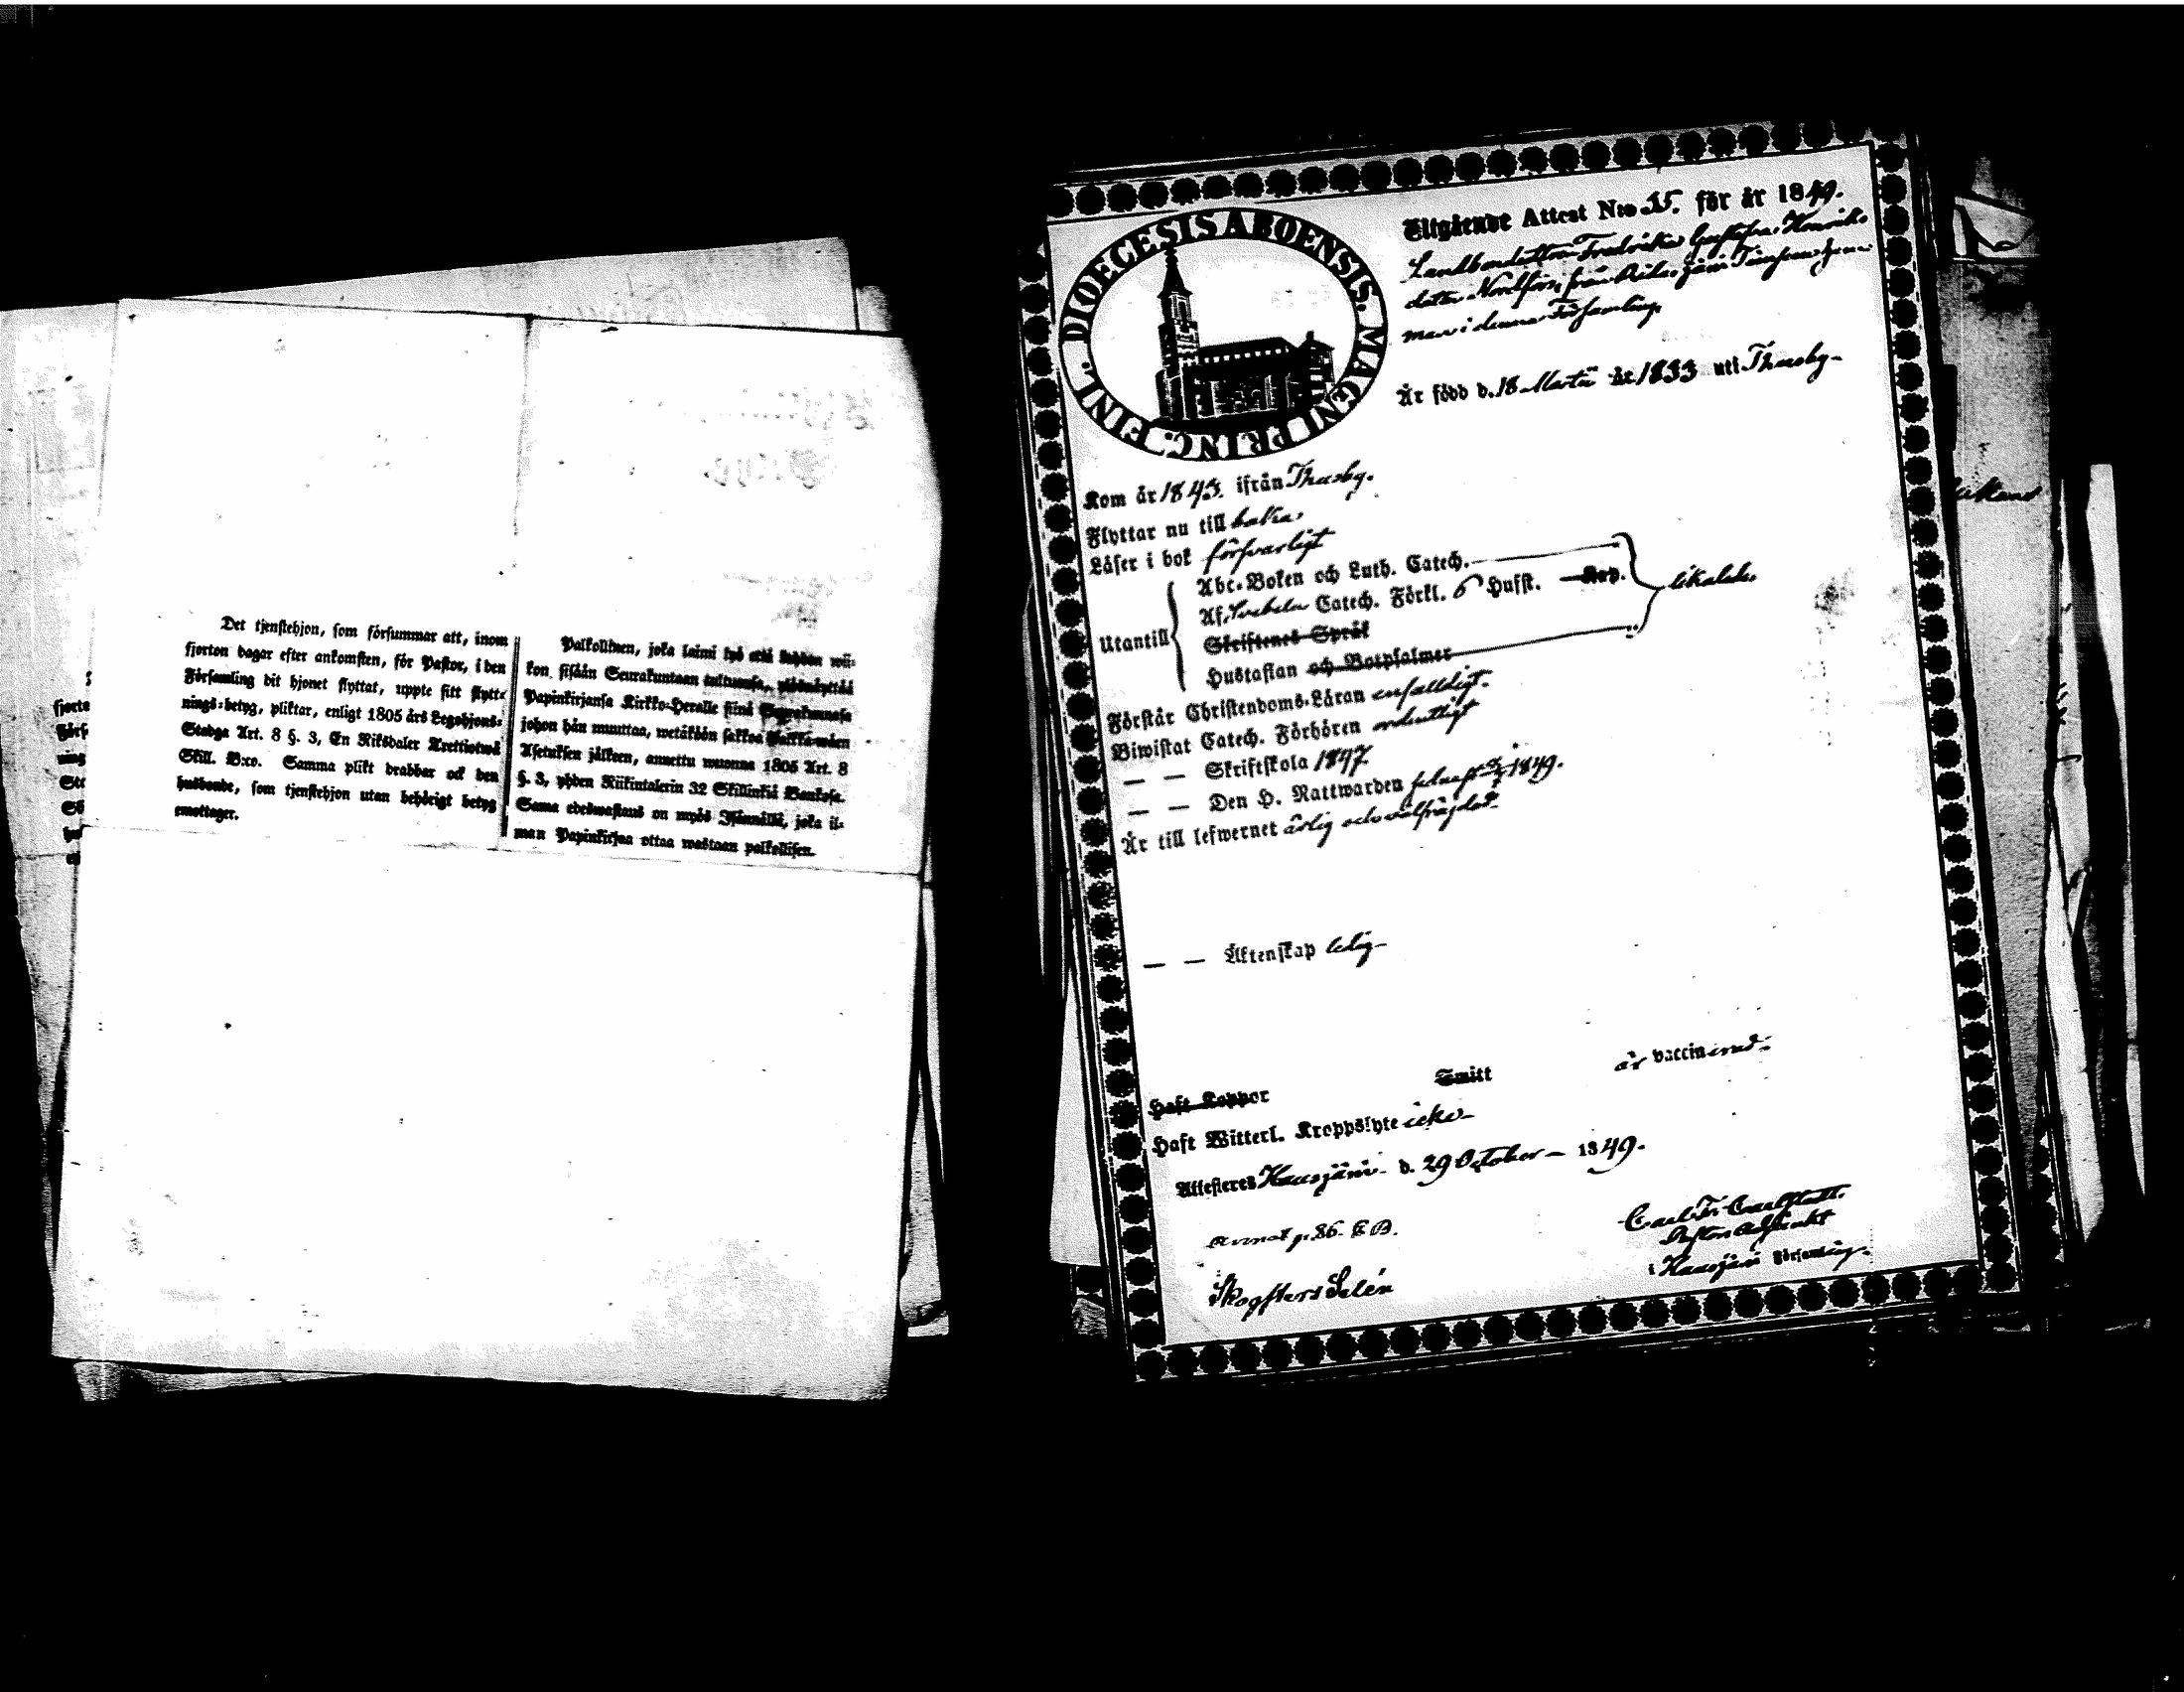 Det tjenstehjon, som försummar att, inom
fjorton dagar efter ankomsten, för Pastor, i den
Församling dit hjonet flyttat, uppte sitt flytt-
nings-betyg, pliktar, enligt 1805 års Legohjons-
Stadga Art. 8 §. 3, En Riksdaler Trettiotwå
Skill. B:co. Samma plikt drabbar ock den
husbonde, som tjenstehjon utan behörigt betyg
emottager.
Palkollinen, joka laimi lyö että kahden wii-
kon sisään Seurakuntaan tultuansa, ylösnäyttää
Papinkirjansa Kirkko-Herralle siinä Seurakunnasa
johon hän muuttaa, wetäköön sakkoa Palkka-wäen
Asetuksen jälkeen, annettu wuonna 1805 Art. 8
§. 3, yhden Riikintalerin 32 Skillinkiä Bankosa.
Sama edeswastaus on myös Isännällä, joka il-
man Papinkirjaa ottaa wastaan palkollisen.
DIOECESIS ABOENSIS. MAGNI PRINC. FINL.
Utgående Attest N:o 55. för år 1849.
Landbondottren Fredrika Gustafva Henriks-
dotter Nordfors, från
i denna Församling.
Är född d. 18 Martii år 1833 uti Thusby
Kom år 1845. ifrån Thusby.
Flyttar nu till baka
Läser i bok försvarligt
Utantill
Abc-Boken och Luth. Catech.
Af Svebelii Catech. Förkl. 6 Husst. Kap.
Skriftenes Språk
Hustaflan och Botpsalmer
likaledes
Förstår Christendoms-Läran enfaldigt.
Biwistat Catech. Förhören ordentligt
— — Skriftskola 1847.
— — Den H. Nattwarden senast 1849.
Är till lefwernet ärlig och välfräjdad.
— — Äktenskap ledig
Haft Koppor Smitt är vaccinerad.
Haft Witterl. Kroppslyte icke
Attesteres Hausjärvi d. 29 October — 1849.
Carl Fr.
Pastors Adjunkt
i Hausjärvi Församling.
p. 86. E B.
Skogsters Selén